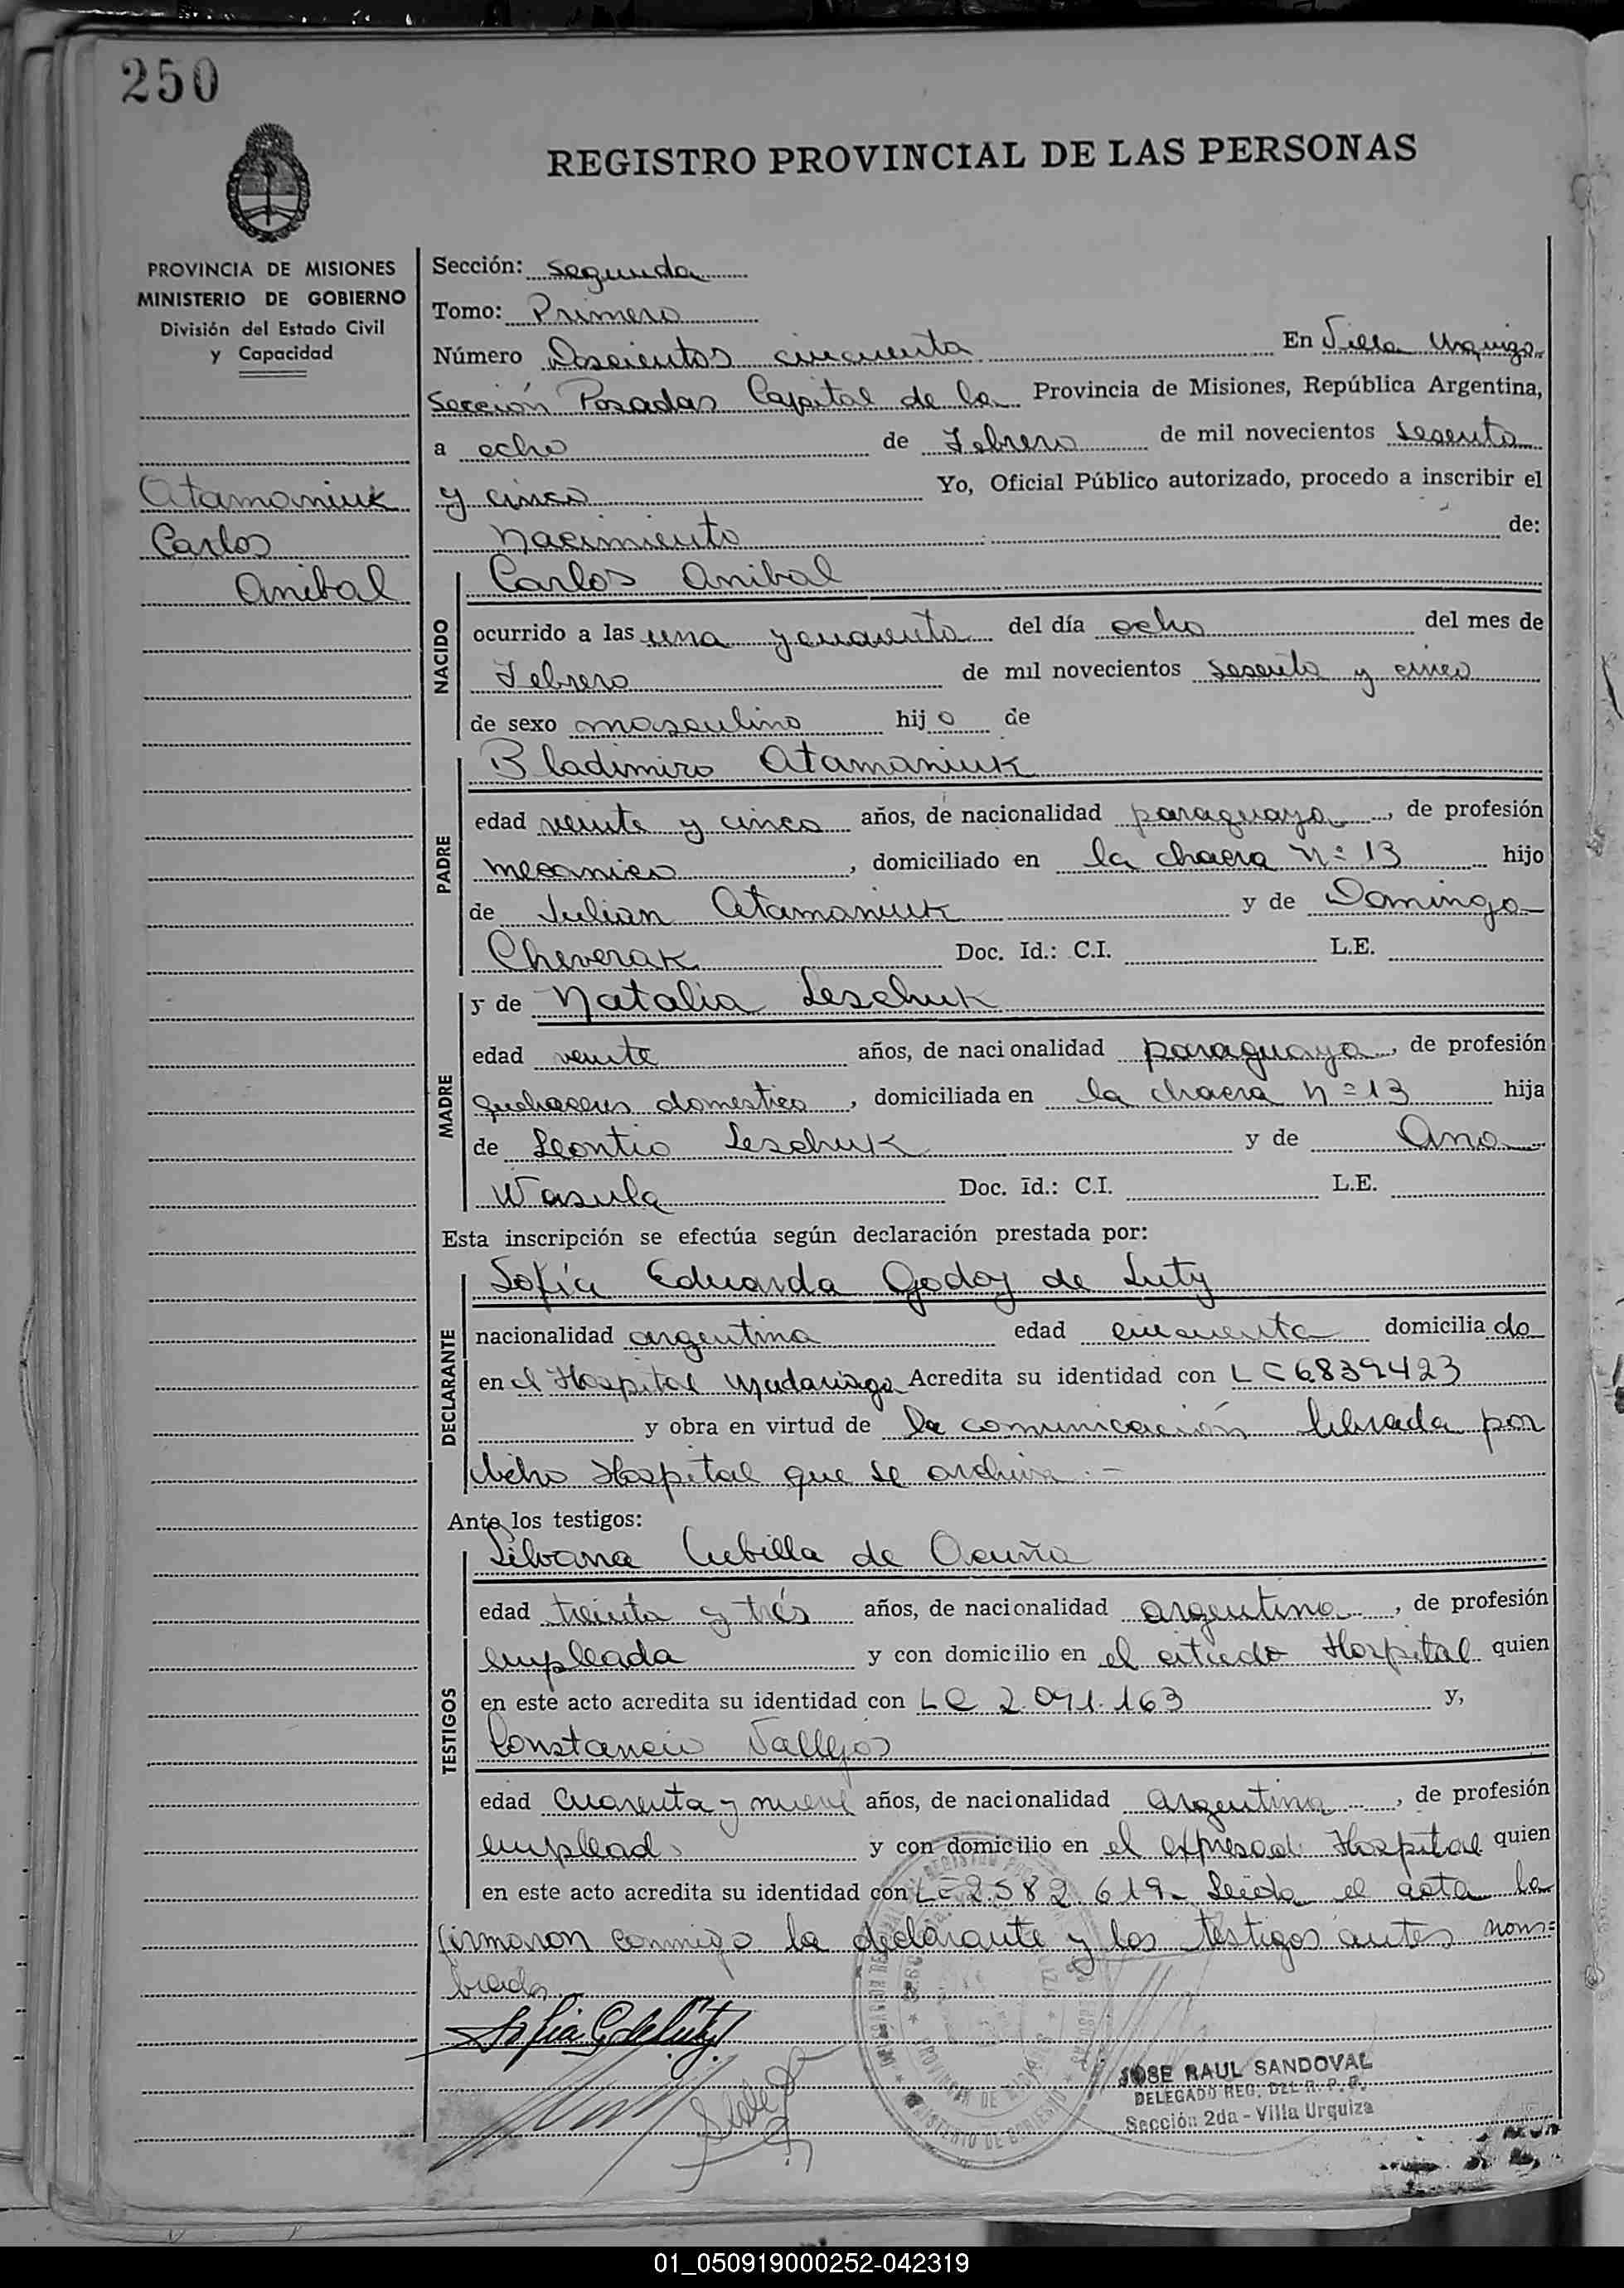 250
REGISTRO PROVINCIAL DE LAS PERSONAS
PROVINCIA DE MISIONES
MINISTERIO DE GOBIERNO
División del Estado Civil
y Capacidad
Atamaniuk
Carlos
Anibal
Sección: segunda
Tomo: Primero
Número Doscientos cincuenta En Villa Urquiza
Sección Posadas Capital de la Provincia de Misiones, República Argentina,
a ocho de Febrero de mil novecientos sesenta
y cinco Yo, Oficial Público autorizado, procedo a inscribir el
nacimiento de:
NACIDO
Carlos Anibal
ocurrido a las una y cuarenta del día ocho del mes de
Febrero de mil novecientos sesenta y cinco
de sexo masculino hijo de
PADRE
Bladimiro Atamaniuk
edad veinte y cinco años, de nacionalidad paraguaya, de profesión
mecanico, domiciliado en la chacra n: 13 hijo
de Julian Atamaniuk y de Dominga
Cheverak Doc. Id.: C.I. L.E.
MADRE
y de Natalia Leschuk
edad veinte años, de nacionalidad paraguaya, de profesión
quehaceres domestico, domiciliada en la chacra n = 13 hija
de Leontio Leschuk y de Ana
Wasula Doc. Id.: C.I. L.E.
Esta inscripción se efectúa según declaración prestada por:
DECLARANTE
Sofía Eduarda Godoy de Luty
nacionalidad argentina edad cincuenta domiciliado
en el Hospital Madariaga Acredita su identidad con LC 6839423
y obra en virtud de la comunicación librada por
dicho Hospital que se archiva.-
Ante los testigos:
TESTIGOS
Silvana Cubilla de Acuña
edad treinta y trés años, de nacionalidad argentina, de profesión
empleada y con domicilio en el citado Hospital quien
en este acto acredita su identidad con LC 2.091.163 y,
Constancio Vallejos
edad cuarenta y nueve años, de nacionalidad argentina, de profesión
empleado y con domicilio en el expresado Hospital quien
en este acto acredita su identidad con LE 2.582.619- Leida el acta la
firmaron conmigo la declarante y los testigos antes nom=
brados
Sofia G de Luty
JOSE RAUL SANDOVAL
DELEGADO REG. DEL R. P. P.
Sección 2da - Villa Urquiza
01_050919000252-042319